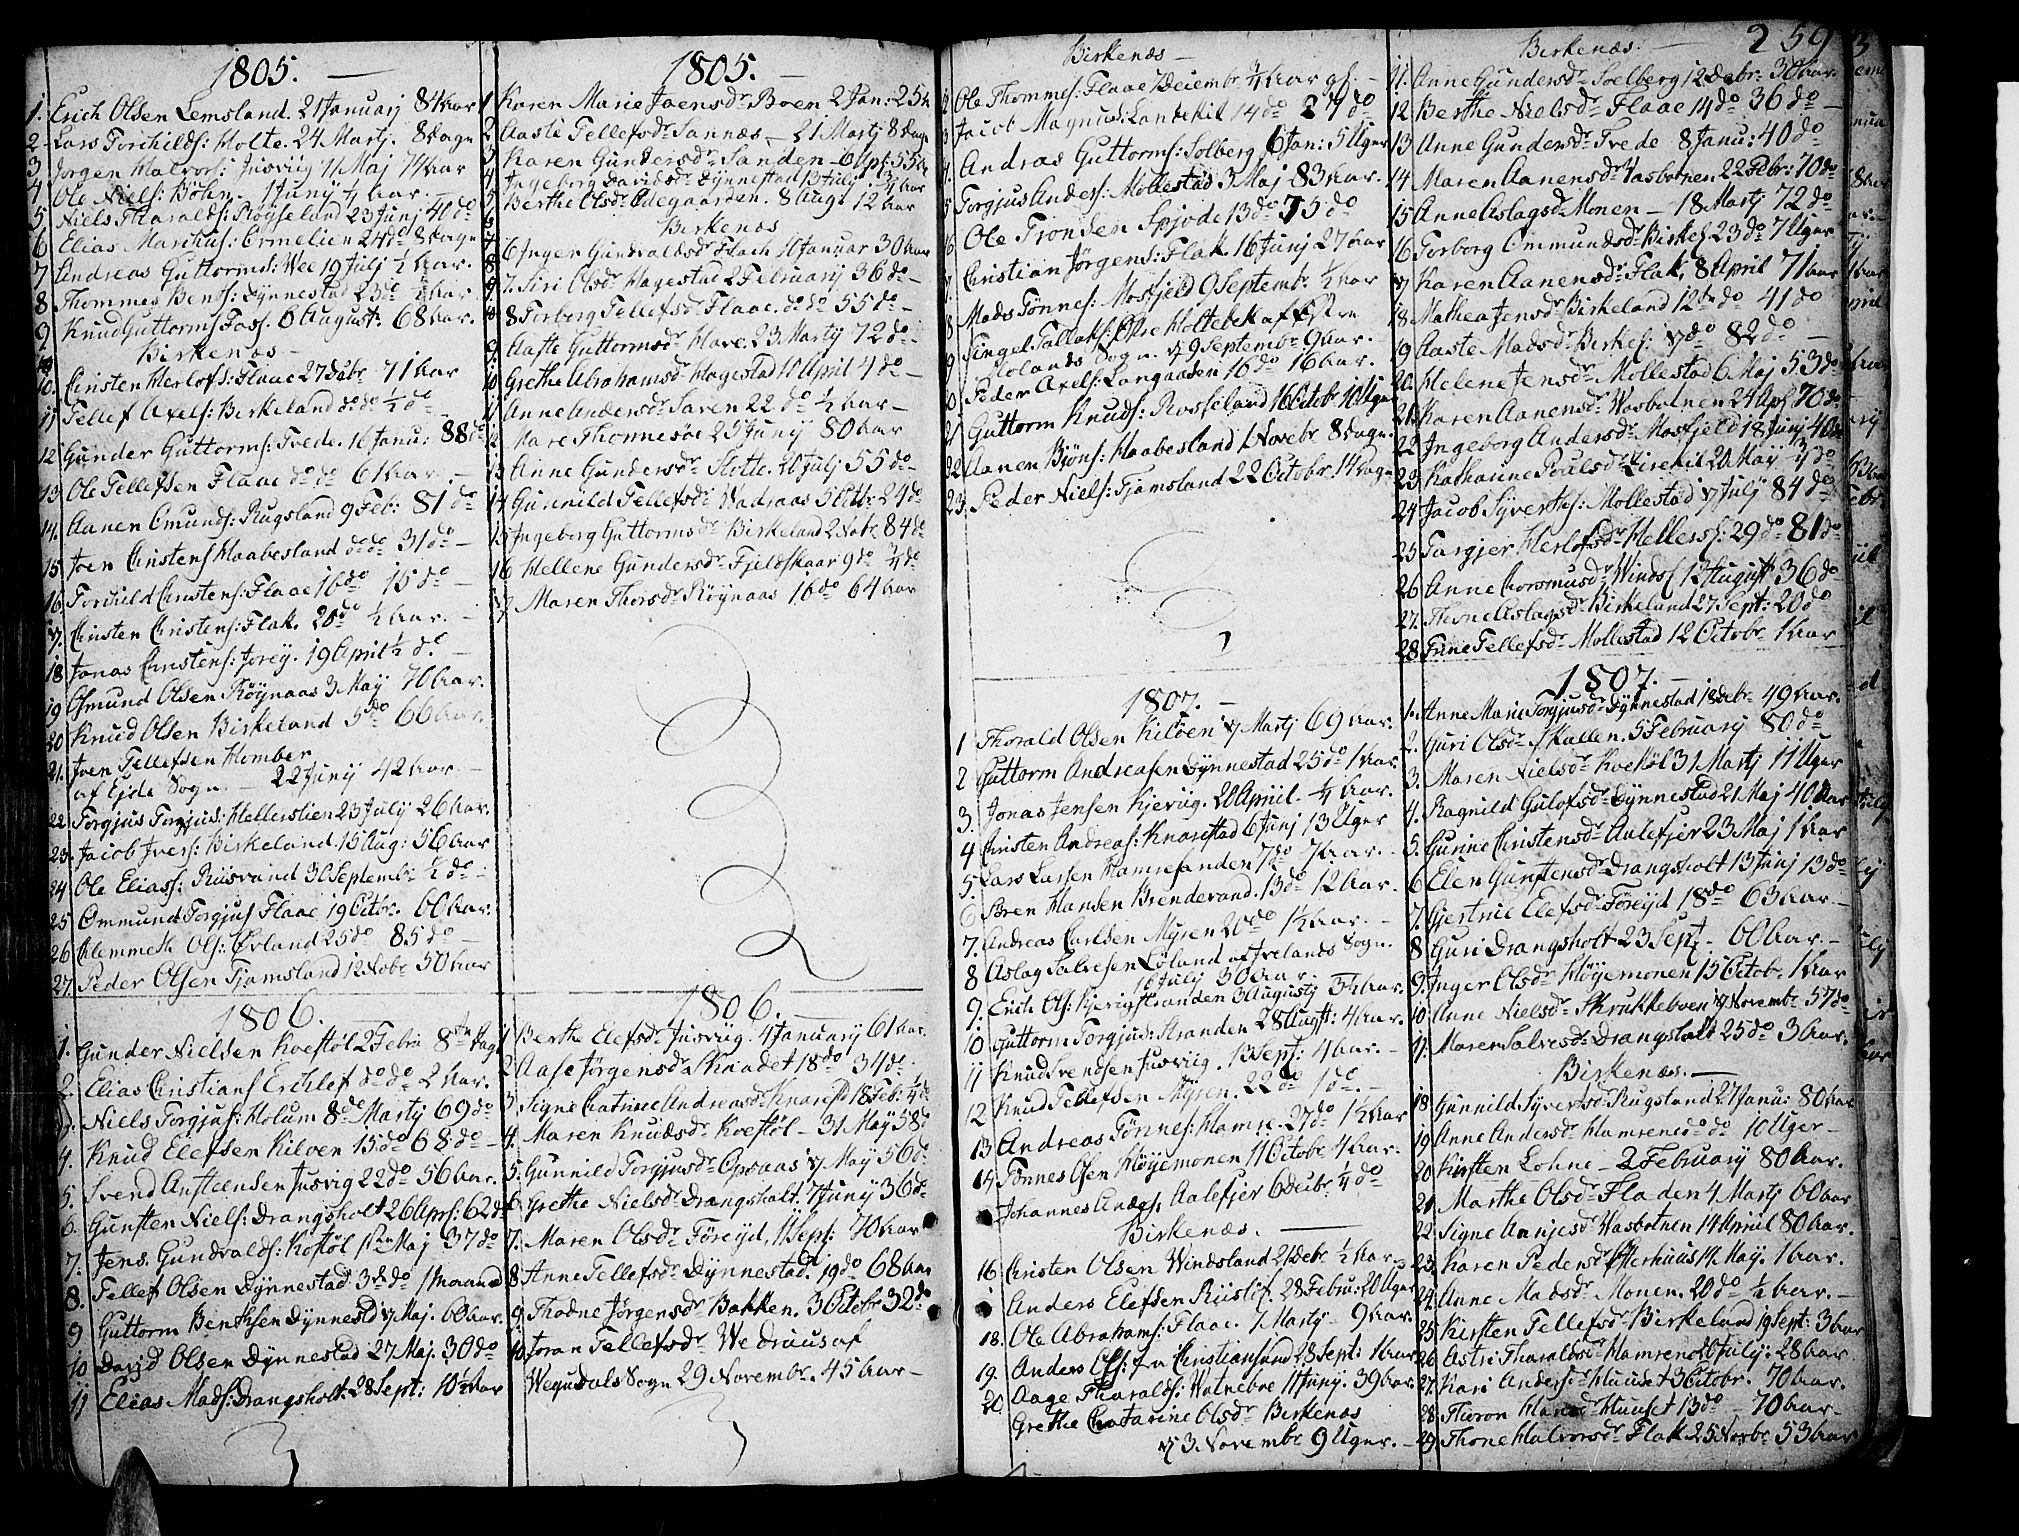 1805.
1. Erich Olsen Lemsland. 21 Januarj 84 Aar
2 Lars Torchilds: Holte. 24 Martj. 8 Dagn
3 Jorgen Halvors: Jusviig 11 Maj 74 Aar
4. Ole Niels: Böhn. 1 Junij ½ Aar.
5 Niels Tharalds: Røyseland 23 Junj 40 do
6 Elias Marchus: Ormelien 24 do 8 Dagn
7 Andreas Guttorms: Wee 19 Julj ½ Aar.
8. Thommes Bents: Dynnestad 23 do ½ Aar
9 Knud Guttorms Foss. 6 August. 68 Aar.
Birkenæs
10. Christen Herlofs: Flaae 27 Debr. 71 Aar
11 Tellef Axels: Birkeland do do ½ do
12 Gunder Guttorms: Tvede. 16 Janu: 88 do
13 Ole Tellefsen Flaae do do 61 Aar.
14. Aanen Omunds: Rugsland 9 Feb: 81 do
15 Joen Christens Haabesland do do 31 do
16 Torkild Christens: Flaae 16 do 15 do
17. Christen Christens: Flak. 20 do ½ Aar.
18 Jonas Christens: Jorej. 19 April ½ do.
19 Osmund Olsen Røynaas 3 May 70 Aar.
20 Knud Olsen Birkeland 5 do 66 Aar.
21. Joen Tellefsen Homber
af Ejde Sogn. 22 Junij 42 Aar.
22 Torgjus Torgjus: Hellerslien 23 July 26 Aar.
23. Jacob Ivers: Birkeland. 15 Aug: 56 Aar
24 Ole Elias: Risvand 30 Septembr ½ do
25 Ommund Torgjus Flaae 19 Octbr. 60 Aar.
26 Clemmeth Ols: Øvland 25 do 85 do
27. Peder Olsen Tjamsland 12 Nobr 50 Aar
1806.
1. Gunder Nielsen Koestøl 2 Febru 8 Dage
2. Elias Christians Erchlef do do 2 Aar.
3. Niels Torgjus: Holum 8 de Martj 69 do
4. Knud Elefsen Kiloen 15 do 68 do
5. Svend Anstensen Jusvig 22 do 56 Aar.
6. Gunsten Niels: Drangsholt 26 Apr: 62 do
7. Jens Gundvalds: Kostøl 1 Maj 37 do
8. Tellef Olsen Dynnestad 3 de do 1 Maaned
9 Guttorm Benthsen Dynnestd 17 Maj. 60 Aar.
10 David Olsen Dynnestad 27 Maj. 30 do
11 Elias Mads: Drangsholt 28 Sept: 10½ Aar
1805.
1 Karen Marie Joensdr Boen 2 Jan: 25 A
2. Aaste Tellefsdr Sannæs 21 Martj 8 Dagn
3 Karen Gundersdr Sanden 6 Apr: 55 A
4. Ingeborg Davidsdr Dynnestad 13 July ¾ Aar
5 Berthe Olsdr Ødegaarden. 8 Augt 12 Aar
Birkenæs
6 Inger Gundvaldsdr Flach 10 Januar 30 Aar
7. Siri Olsdr Hagestad 2 Februarij 36 do
8 Torborg Tellefsdr Flaae. do do 55 do
9. Aaste Guttormsdr Have. 23 Martij 72 do
10 Grethe Abrahamsdr Hagestad 10 April 4 do
11 Anne Andersdr Saren 22 do ½ Aar
12 Mare Thommesøe 25 Junij 80 Aar
13 Anne Gundersdr Slotte. 20 Julj 55 do
14 Gunnild Tellefsdr Vadraas 5 Octbr 24 do
15 Ingeborg Guttormsdr Birkeland 2 Nobr. 84 do
16 Hellene Gundersdr Fjeldskaar 9 do ¾ do
17 Maren Thorsdr Røynaas 16 do 64 Aar
1806.
1 Berthe Elefsdr Jusviig. 4 Januarij 61 Aar.
2 Aase Jørgensdr Skraadet 18 do 34 do
3. Signe Catrine Andreasdr Knarestd 18 Feb: ¼ do
4. Maren Knudsdr Koestøl 31 May 58 do
5. Gunnild Torgjusdr Opsaas 17 May 56 do
6 Grethe Nielsdr Drangsholt. 7 Junij 36 do
7. Maren Olsdr Føreijd, 11 Sept: 70 Aar
8 Anne Tellefsdr Dynnestad. 19 do 68 Aar
9. Thodne Jørgensdr Bakken. 3 Octobr 32 do
10 Joran Tellefsdr We af
Wegusdals Sogn 29 Novembr. 45 Aar
Birkenæs
2 Ole Thommes: Flaae 1 Decembr ¾ Aar gl.
3 Jacob Magnus: Landekil 14 do 27 do
4. Andras Guttorms: Solberg 6 Jan: 5 Uger
5 Torgjus Anders: Mollestad 3 Maj 83 Aar.
6 Ole Tronsen Spjode 13 do 75 do
7. Christian Jørgens: Flak. 16 Junj 27 Aar
8 Mads Tønnes: Mosfjeld 9 Septembr. ½ Aar
9 Singel Tallaks: Øvre Holtebek af Østre
Molands Sogn. 19 Septembr. 9 Aar.
10 Peder Axels: Langaasen 16 do 16 Aar.
21 Guttorm Knuds: Rosseland 16 Octobr 10 Uger
22 Aanen Bjöns: Haabesland 1 Novebr 8 Dagn.
23. Peder Niels: Tjamsland 22 Octobr. 14 Dagn
1807.
1 Thorald Olsen Kiløen 17 Martj 69 Aar.
2 Guttorm Andreasen Dynnestad 25 do 1 Aar.
3. Jonas Jensen Kjeviig. 20 Apriil. ¼ Aar.
4 Christen Andreas: Knarestad 6 Junj 13 Uger
5. Lars Larsen Hamresanden 7 do 7 Aar.
6 Søren Hansen Brendevand. 13 do 12 Aar.
7. Andreas Carlsen Myren 20 do 1½ Aar.
8 Aslag Salvesen Løland af Ivelands Sogn.
16 July 30 Aar
9. Erich Ols: Kjevigstranden 3 Augusty 3½ Aar.
10 Guttorm Torgjus: Stranden 28 Augst: 4 Aar.
11 Knud Svendsen Jusviig. 13 Sept: 4 Aar.
12 Knud Tellefsen Myren. 22 do 1 do.
13 Andreas Tønnes: Hamre. 27 do 1½ Aar
14 Tønnes Olsen Høyemonen 11 Octobr 4 Aar.
Johannes Anders Aalefjer 6 Decbr. ¼ do
Birkenæs.
16 Christen Olsen Windsland 21 Debr ½ Aar
Anders Elefsen Riislöf. 28 Febru: 20 Uger
18. Ole Abrahams: Flaae. 1 Martj 9 Aar.
19. Anders Ols: fra Christiansand 28 Sept: 1 Aar
20 Aage Tharalds: Watnebroe 11 Junj. 39 Aar.
Grethe Catarine Olsdr Birkenæs
3 Novembr 9 Uger.
Birkenæs.
259
11. Anne Gundersdr Soelberg 12 Debr. 30 Aar.
12 Berthe Nielsdr Flaae 14 do 36 do
13 Anne Gundersdr Tvede 8 Janu: 40 do
14 Maren Aanensdr Vasbotnen 22 Febr: 70 do
15 Anne Aslagsdr Monen 18 Martj 72 do
16 Torborg Ommundsdr Birkel 23 do 7 Uger
17 Karen Aanensdr Flak. 8 April 71 Aar
18 Mathea Jensdr Birkeland 12 te do 41 do
19 Aaste Madsdr Birkel: 17 do 82 do
20. Helene Jensdr Mollestad 6 Maj 53 do
21 Karen Aanensdr Wasbotnen 24 Apr 70 do
22 Ingeborg Andersdr Mosfjeld 18 Junj 40 do
23 Kathrine Poulsdr Lirekil 20 Maj ¾ do
24 Jacob Syverths: Mollestad 17 Julj 84 do
25 Targjer Herlofsdr Hellers: 29 do 81 do
26 Anne Aorsmusdr Windsl 13 August 36 do
27. Thone Aslagsdr Birkeland 27 Sept: 20 do
28 Trine Tellefsdr Mollestad 12 Octobr. 1 Aar
1807.
1. Anne Marie Torgjusdr Dynnestad 18 Debr 49 Aar.
2. Guri Olsdr Skallen. 5 Februarij 80 do
3. Maren Nielsdr Koestøl 31 Martj 11 Uger
4. Ragnild Gulofsdr Dynnestad 21 Maj 40 Aar
5. Gurine Christensdr Aalefjer 23 Maj 1 Aar
6 Elen Gunstensdr Drangsholt 13 Junj 13 do
7. Gjertrue Elefsdr Føreijd 18 do 63 Aar
8 Guri Drangsholt 23 Sept 60 Aar.
9. Inger Olsdr Høyemonen 15 Octobr. 1 Aar
10. Anne Nielsdr Skrukkeboen 17 Novembr. 57 do
11. Maren Salvesdr Drangsholt 25 do 3 Aar.
Birkenæs.
18 Gunnild Syversdr Rugsland 27 Janu: 80 Aar
19 Anne Andersdr Hamren do do 10 Uger
20 Kirsten Lohne 2 Februarij 80 Aar.
21 Marthe Olsdr Fladen 4 Martj 60 Aar
22. Signe Aanjesdr Wasbotnen 14 Apriil 80 Aar.
23. Karen Pedersdr Østerhuus 14 Maj. 1 Aar.
24. Anne Madsdr Monen. 20 do ½ Aar.
25 Kirsten Tellefsdr Birkeland 19 Sept: 3 Aar
26 Astri Tharaldsdr Hamren 20 July. 28 Aar
27. Kari Andersdr Huuset 3 Octobr. 70 Aar.
28. Thoron Hansdr Huuset 13 do 70 Aar
29. Thone Halvorsdr Flak 25 Novbr 53 Aar